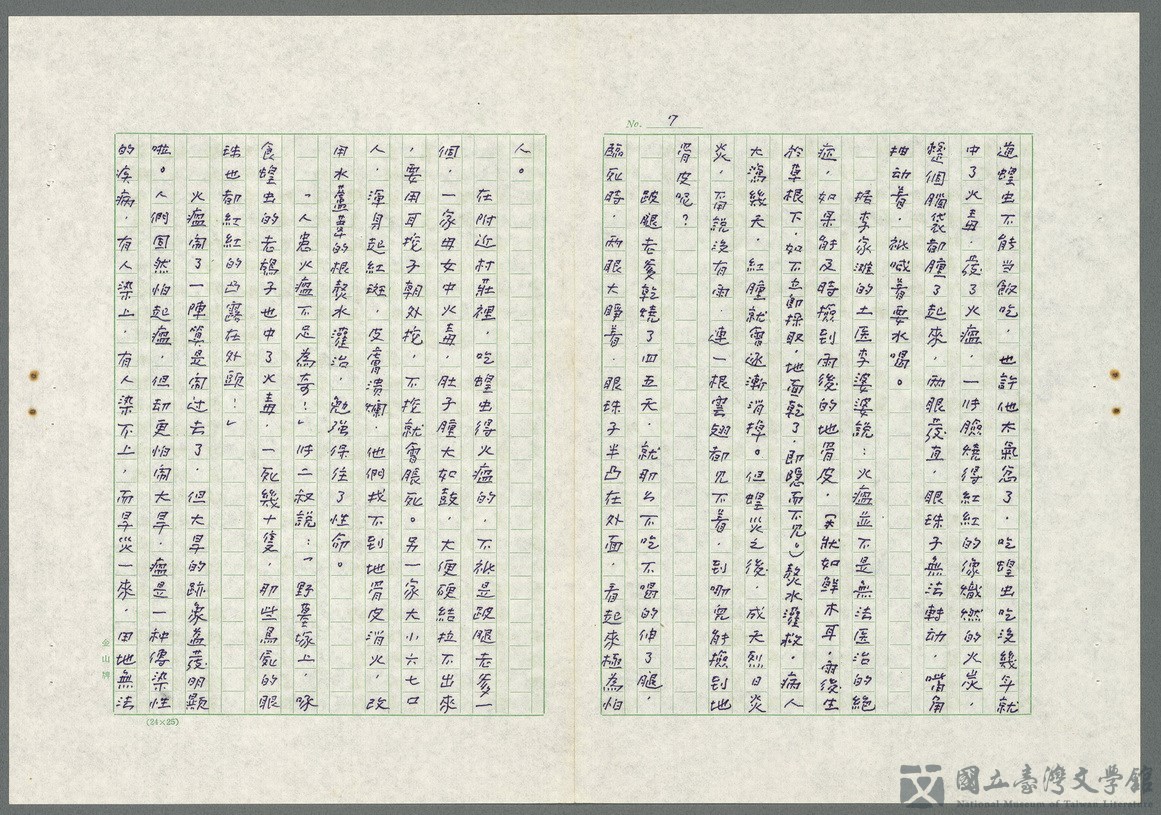 No. 7
這蝗虫不能当飯吃．也許他太氣忿了．吃蝗虫吃沒幾年就
中了火毒．發了火瘟．一付臉燒得紅紅的像熾燃的火炭．
整個腦袋都腫了起來．兩眼發直．眼珠子無法轉动．嘴角
抽动着．祇喊着要水喝。
据李家灘的土医李婆婆說：火瘟並不是無法医治的絕
症．如果能及時撿到雨後的地骨皮．（其狀如鮮木耳．雨後生
於草根下．如不立即採取．地面乾了．即隐而不見。）熬水灌救．病人
大瀉幾天．紅腫就會逐漸消掉。但蝗災之後．成天烈日炎
炎．甭說沒有雨．連一根雲翅都見不着．到哪兒能撿到地
骨皮呢？
跛腿老爹乾燒了四五天．就那么不吃不喝的伸了腿．
臨死時．兩眼大睜着．眼珠子半凸在外面．看起來極為怕
人。
在附近村莊裡．吃蝗虫得火瘟的．不祇是跛腿老爹一
個．一家母女中火毒．肚子腫大如鼓．大便硬結拉不出來
．要用耳挖子朝外挖．不挖就會脹死。另一家大小六七口
人．渾身起紅斑．皮膚潰爛．他們找不到地骨皮消火．改
用水蘆葦的根熬水灌治．勉強保住了性命。
「人患火瘟不足為奇！」付二叔說：「野墓塚上．啄
食蝗虫的老鴰子也中了火毒．一死幾十隻．那些鳥屍的眼
珠也都紅紅的凸露在外頭！」
火瘟鬧了一陣算是鬧过去了．但大旱的跡象益發明顯
啦。人們固然怕起瘟．但却更怕鬧大旱．瘟是一种傳染性
的疾病．有人染上．有人染不上．而旱災一來．田地無法
金山牌
(24×25)
國立臺灣文學館
National Museum of Taiwan Literature